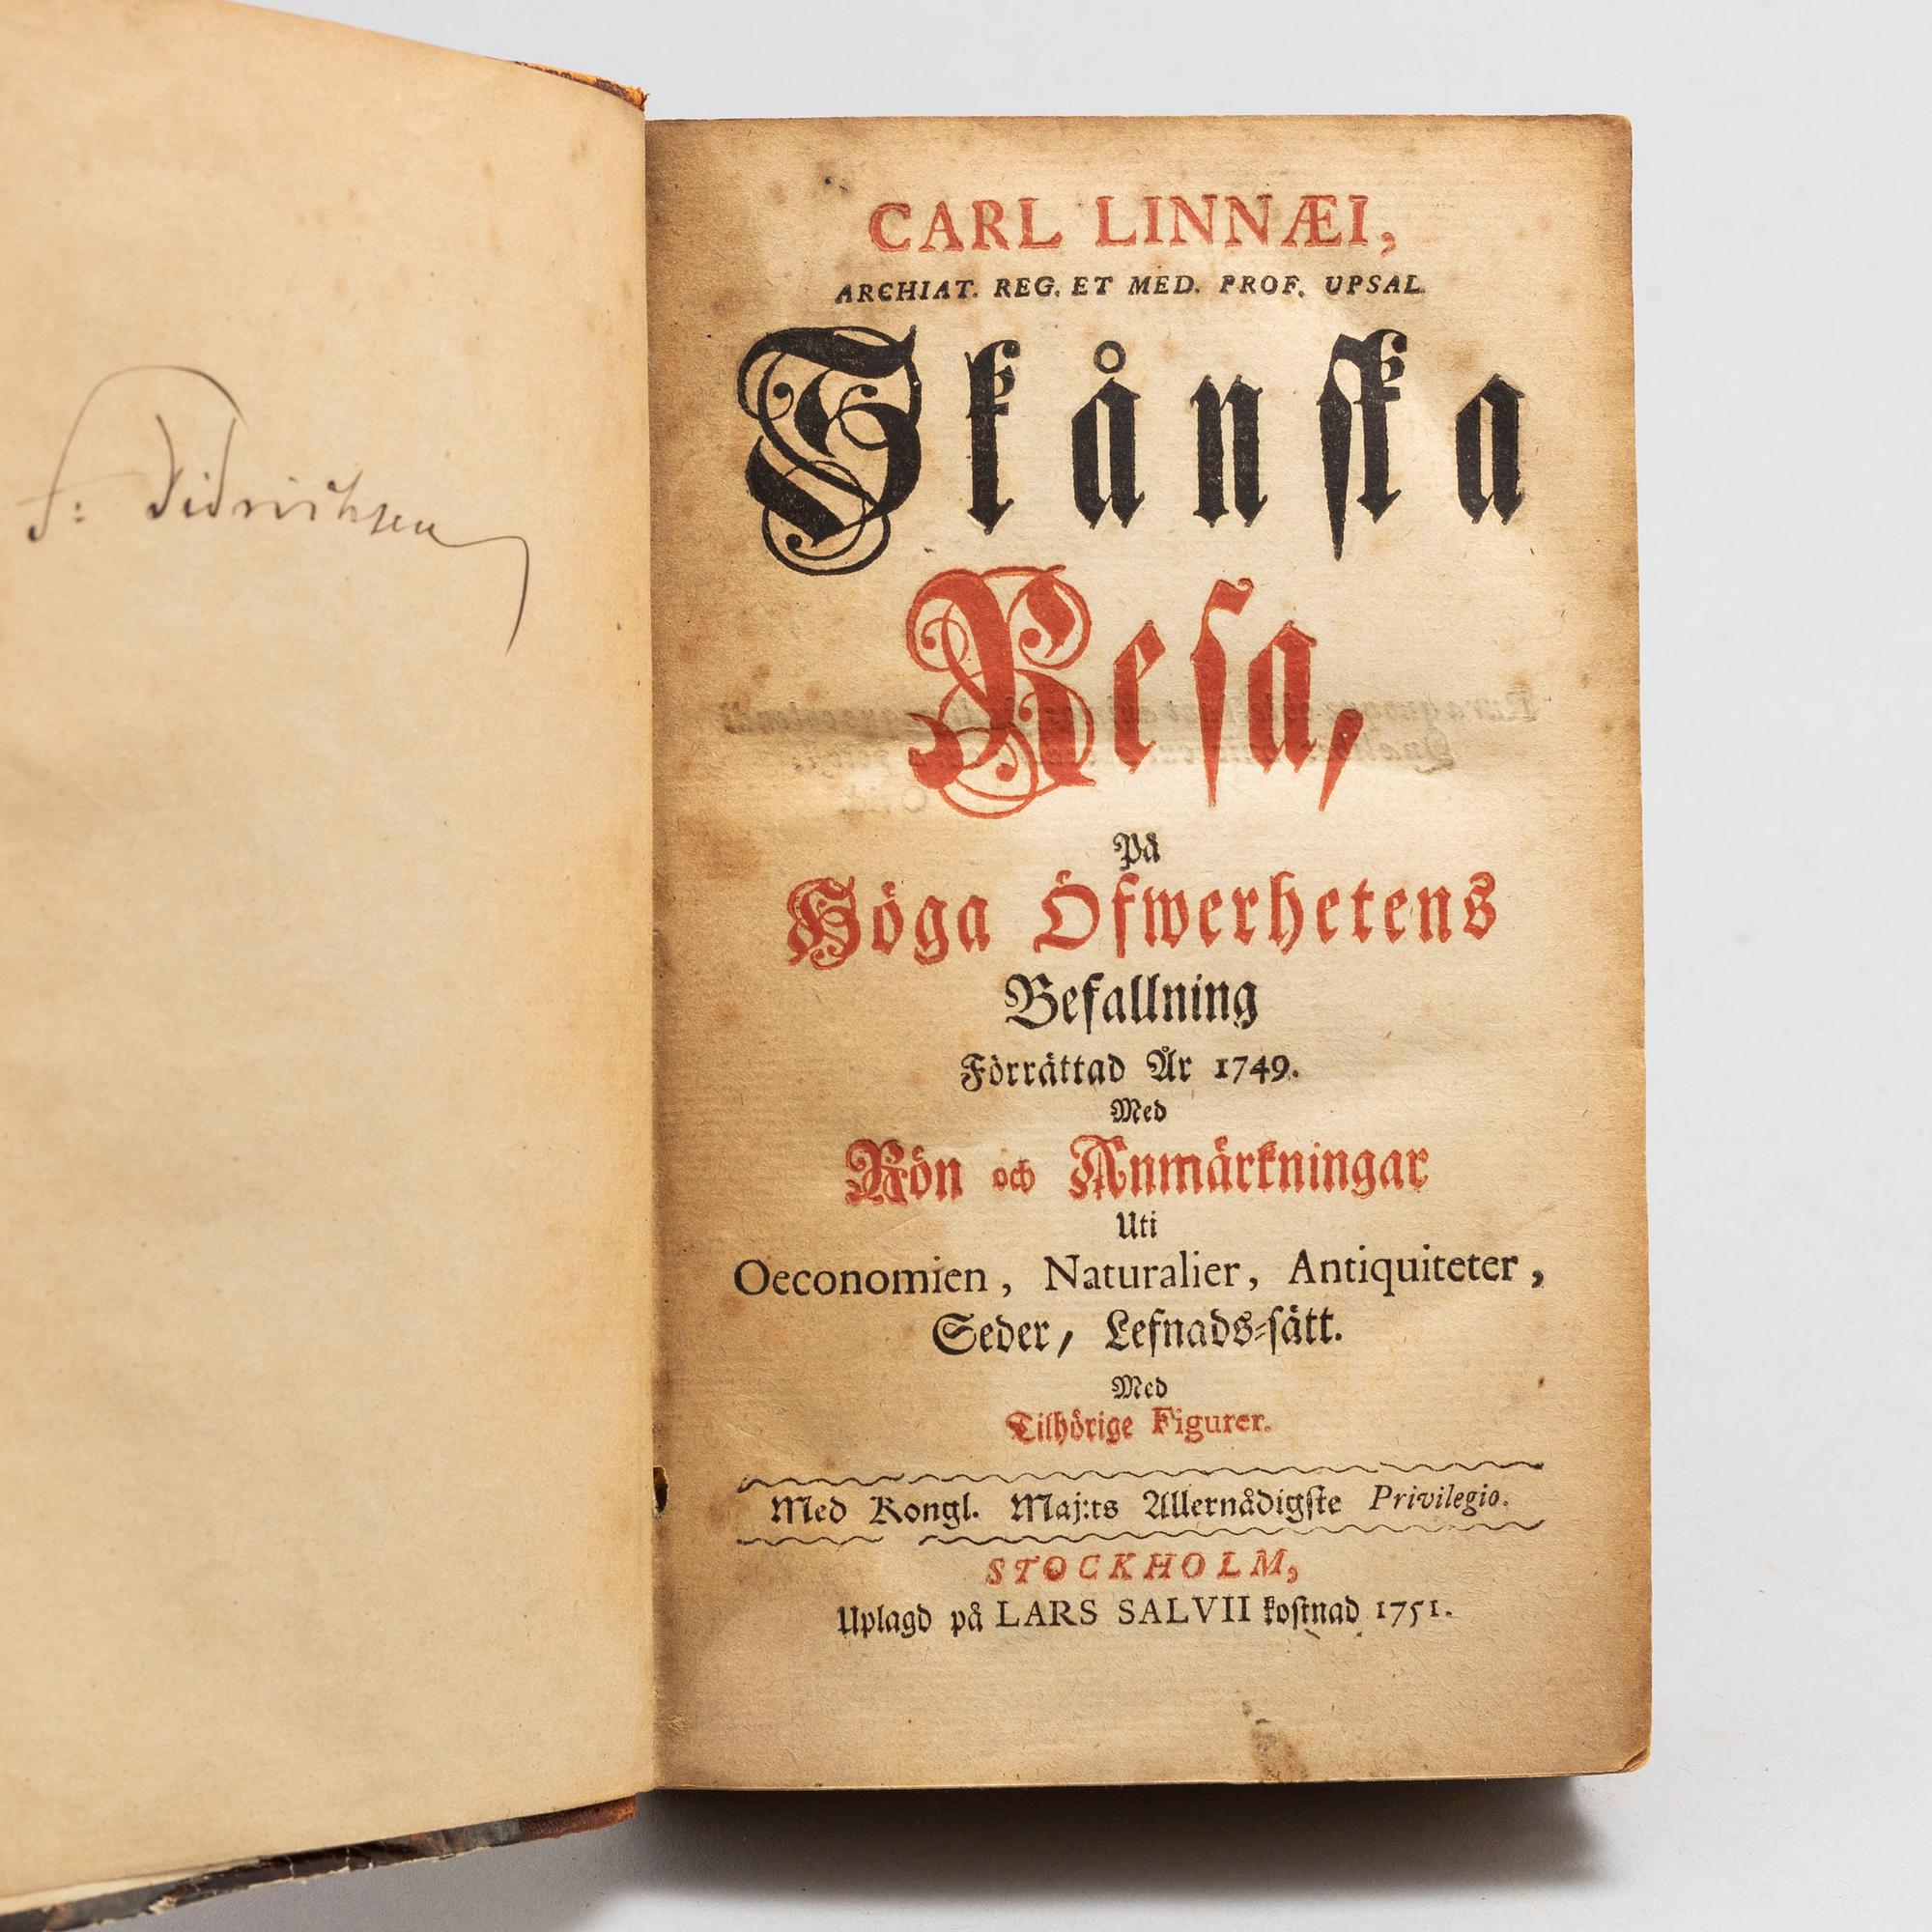 F: Didrichsen
CARL LINNÆI,
ARCHIAT. REG. ET MED. PROF. UPSAL.
Skånſka
Reſa,
På
Höga Öfwerhetens
Befallning
Förrättad År 1749.
Med
Rön och Anmärkningar
Uti
Oeconomien, Naturalier, Antiquiteter,
Seder, Lefnads-ſätt.
Med
Tilhörige Figurer.
Med Kongl. Maj:ts Allernådigſte Privilegio.
STOCKHOLM,
Uplagd på LARS SALVII koſtnad 1751.